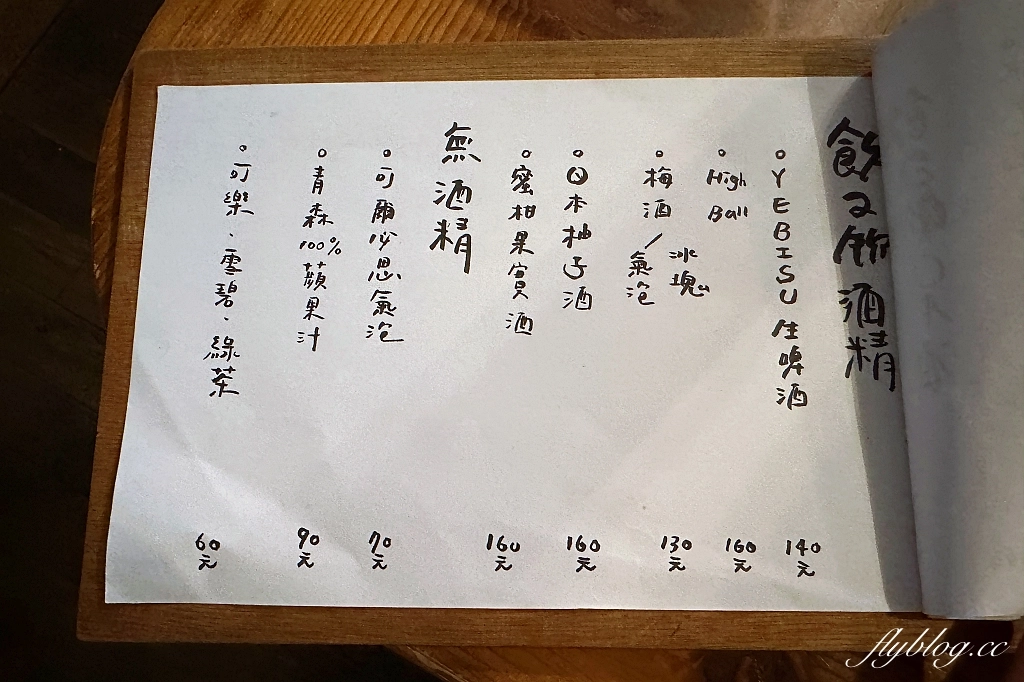 飲み飲酒精
YEBISU生啤酒 140元
High Ball 160元
梅酒/冰塊 氣泡 130元
日本柚子酒 160元
蜜柑果實酒 160元
無酒精
可爾必思氣泡 70元
青森100%蘋果汁 90元
可樂、雪碧、綠茶 60元
flyblog.cc